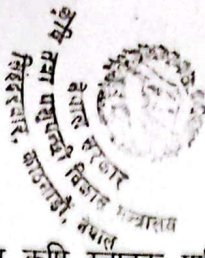 नेपाल सरकार
कृषि तथा पशुपन्छी विकास मन्त्रालय
सिंहदरबार, काठमाडौं, नेपाल
कृषि